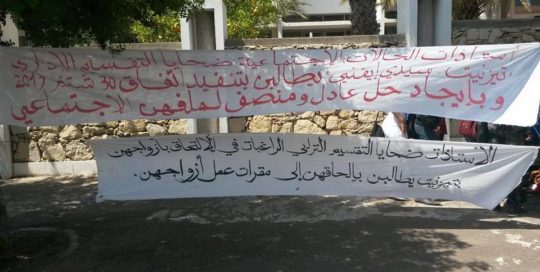 أستاذات الحالات الاجتماعية ضحايا التقسيم الاداري
تيزنيت سيدي إيفني يطالبن بتنفيذ اتفاق 30 شتنبر 2013
و بإيجاد حل عادل و منصف لملفهن الاجتماعي
الأستاذات ضحايا التقسيم الترابي الراغبات في الالتحاق بأزواجهن
بتيزنيت يطالبن بإلحاقهن إلى مقرات عمل أزواجهن.